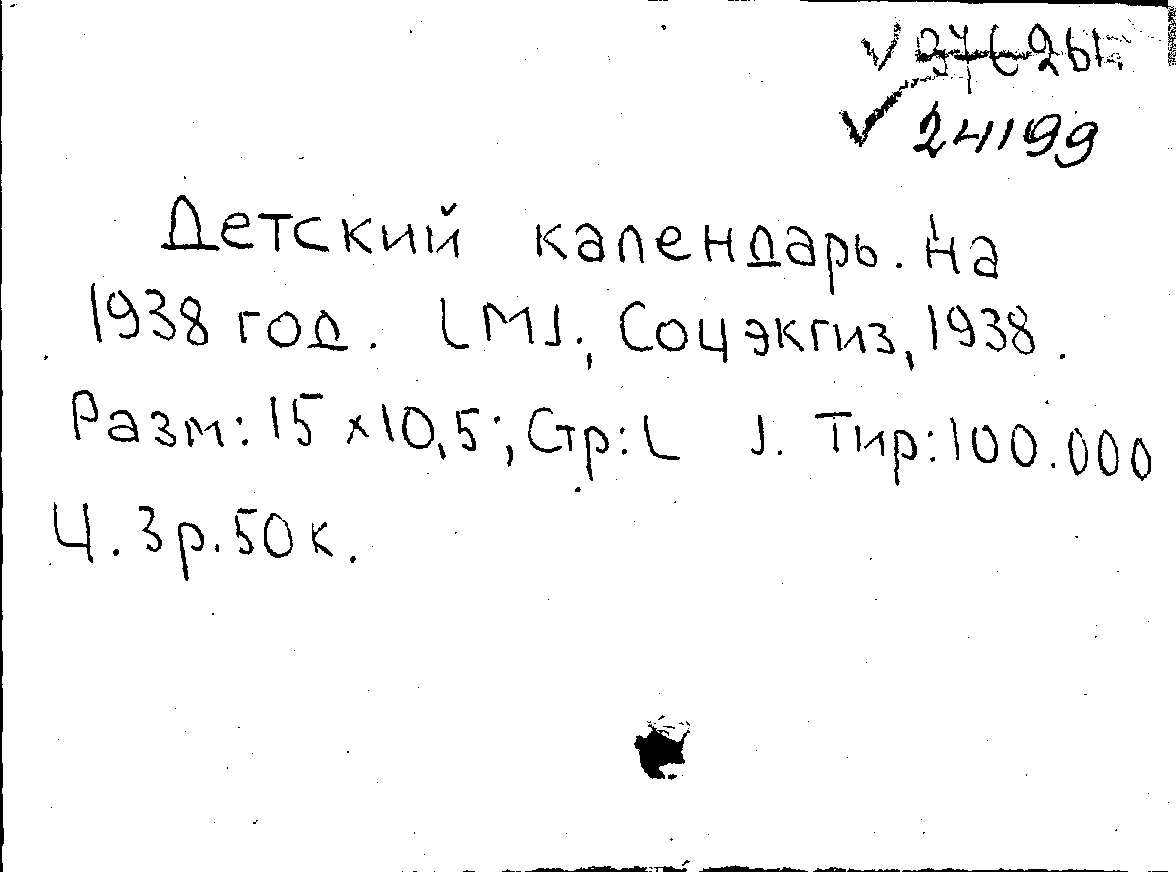 24199
Детский календарь. На
1938 год. [М]., Соцэкгиз, 1938.
Разм: 15 х 10,5; Стр: [ ]. Тир: 100.000
Ц. 3 р. 50 к.